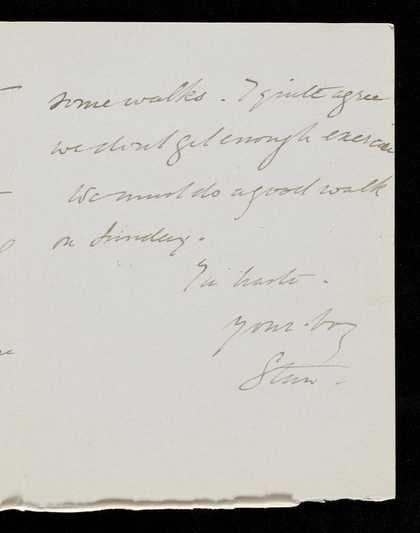 some walks. I quite agree
we dont get enough exercise
We must do a good walk
on Sunday.
In haste.
Your boy